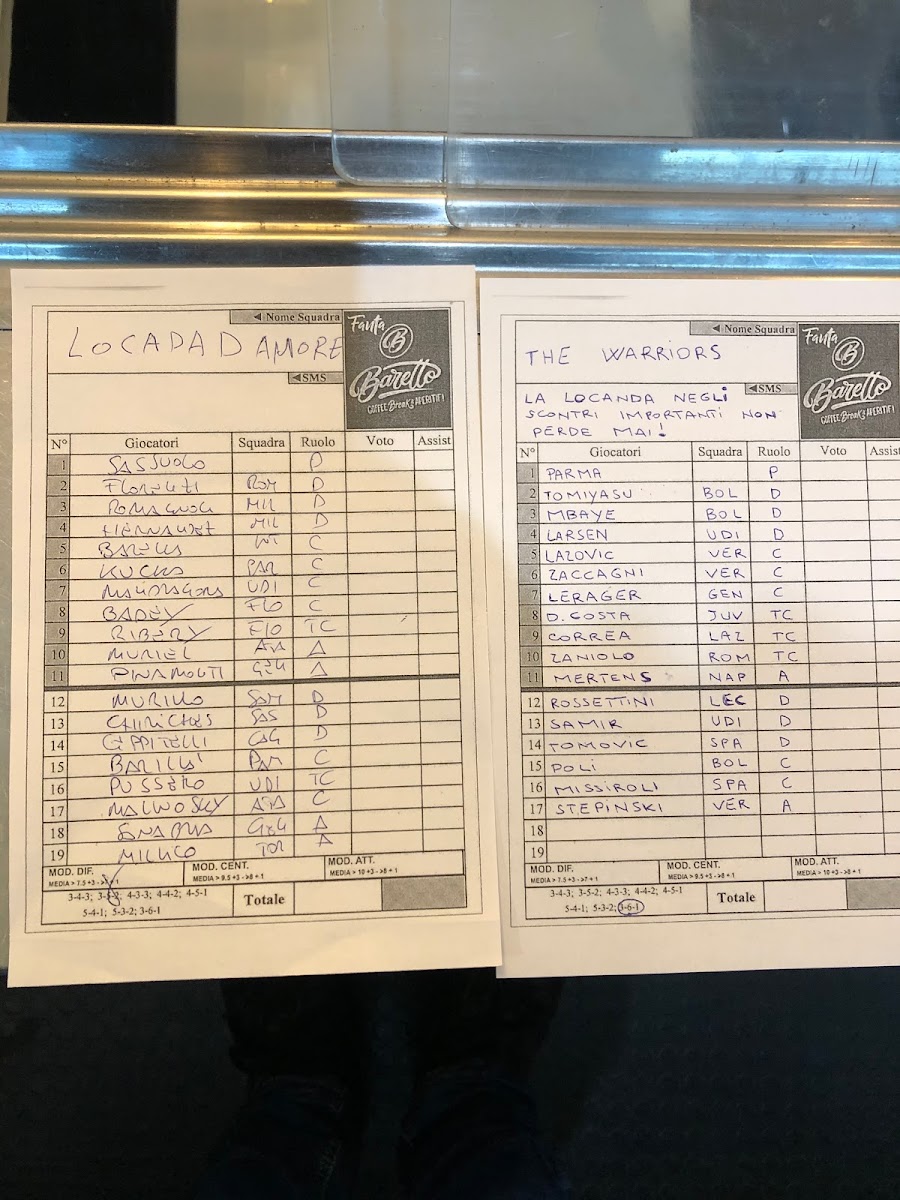 Nome Squadra
LOCADAD AMORE
SMS
Fanta
B
Baretto
COFFEE Break's APERITIF!
N° Giocatori Squadra Ruolo Voto Assist
1 SASSUOLO P
2 FLORENZI ROM D
3 ROMAGNOLI MIL D
4 HERNANDEZ MIL D
5 BARELLA INT C
6 KUCKA PAR C
7 MANDRAGORA UDI C
8 BADELY FIO C
9 RIBERY FIO TC
10 MURIEL ATA A
11 PINAMONTI GEN A
12 MURILLO SAM D
13 CHIRICHES SAS D
14 CEPPITELLI CAG D
15 BARILLA' PAR C
16 PUSSETO UDI TC
17 MALINOSKY ATA C
18 SANABRIA GEN A
19 MILLICO TOR A
MOD. DIF. MOD. CENT. MOD. ATT.
MEDIA > 7.5 +3 ->7 + 1 MEDIA > 9.5 +3 ->8 + 1 MEDIA > 10 +3 ->8 + 1
3-4-3; 3-5-2; 4-3-3; 4-4-2; 4-5-1
5-4-1; 5-3-2; 3-6-1
Totale
Nome Squadra
THE WARRIORS
SMS
LA LOCANDA NEGLI
SCONTRI IMPORTANTI NON
PERDE MAI!
Fanta
B
Baretto
COFFEE Break's APERITIF!
N° Giocatori Squadra Ruolo Voto Assist
1 PARMA P
2 TOMIYASU BOL D
3 MBAYE BOL D
4 LARSEN UDI D
5 LAZOVIC VER C
6 ZACCAGNI VER C
7 LERAGER GEN C
8 D. COSTA JUV TC
9 CORREA LAZ TC
10 ZANIOLO ROM TC
11 MERTENS NAP A
12 ROSSETTINI LEC D
13 SAMIR UDI D
14 TOMOVIC SPA D
15 POLI BOL C
16 MISSIROLI SPA C
17 STEPINSKI VER A
18
19
MOD. DIF. MOD. CENT. MOD. ATT.
MEDIA > 7.5 +3 ->7 + 1 MEDIA > 9.5 +3 ->8 + 1 MEDIA > 10 +3 ->8 + 1
3-4-3; 3-5-2; 4-3-3; 4-4-2; 4-5-1
5-4-1; 5-3-2; 3-6-1
Totale